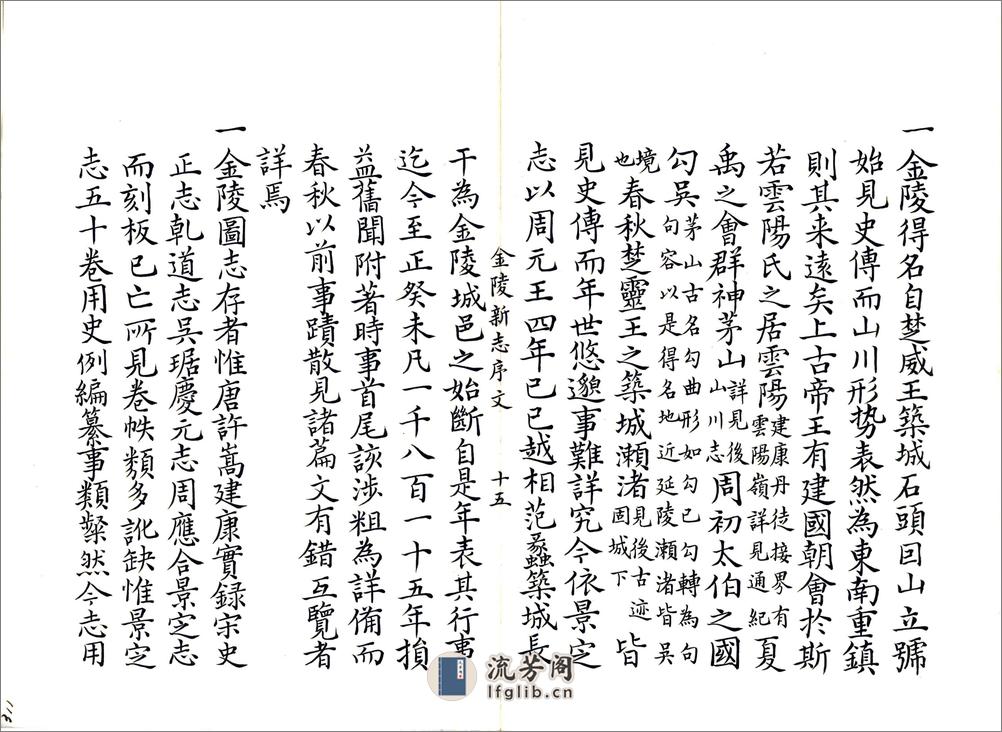 一金陵得名自楚威王築城石頭因山立號
始見史傳而山川形势表然為東南重鎮
則其来遠矣上古帝王有建國朝會於斯
若雲陽氏之居雲陽建康丹徒接界有雲陽嶺詳見通紀夏
禹之會群神茅山詳見後山川志周初太伯之國
勾吳茅山古名勾曲形如勾已勾轉為句句容以是得名地近延陵瀬渚皆吳
境也春秋楚靈王之築城瀬渚見後古迹固城下皆
見史傳而年世悠邈事難詳究今依景定
志以周元王四年己巳越相范蠡築城長
金陵新志序文 十五
干為金陵城邑之始斷自是年表其行事
迄今至正癸未凡一千八百一十五年損
益舊聞附著時事首尾該涉粗為詳備而
春秋以前事蹟散見諸篇文有錯互覽者
詳焉
一金陵圖志存者惟唐許嵩建康實録宋史
正志乹道志吳琚慶元志周應合景定志
而刻板已亡所見卷帙類多訛缺惟景定
志五十卷用史例編纂事類粲然今志用
311
流芳阁
lfglib.cn